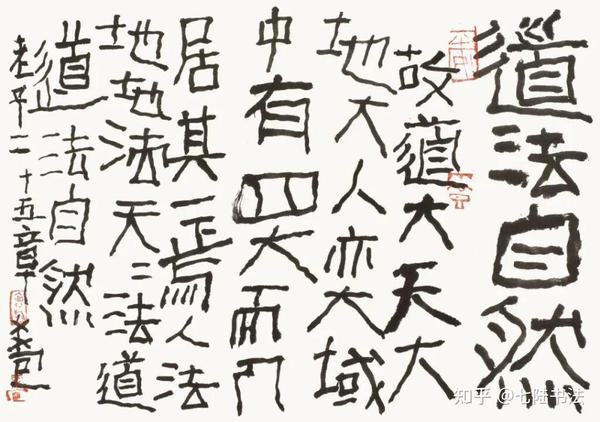 道法自然
故道大天大
地大人亦大域
中有四大而人
居其一焉人法
地地法天二法道
道二法自然
老子二十五章
知乎 @七陆书法